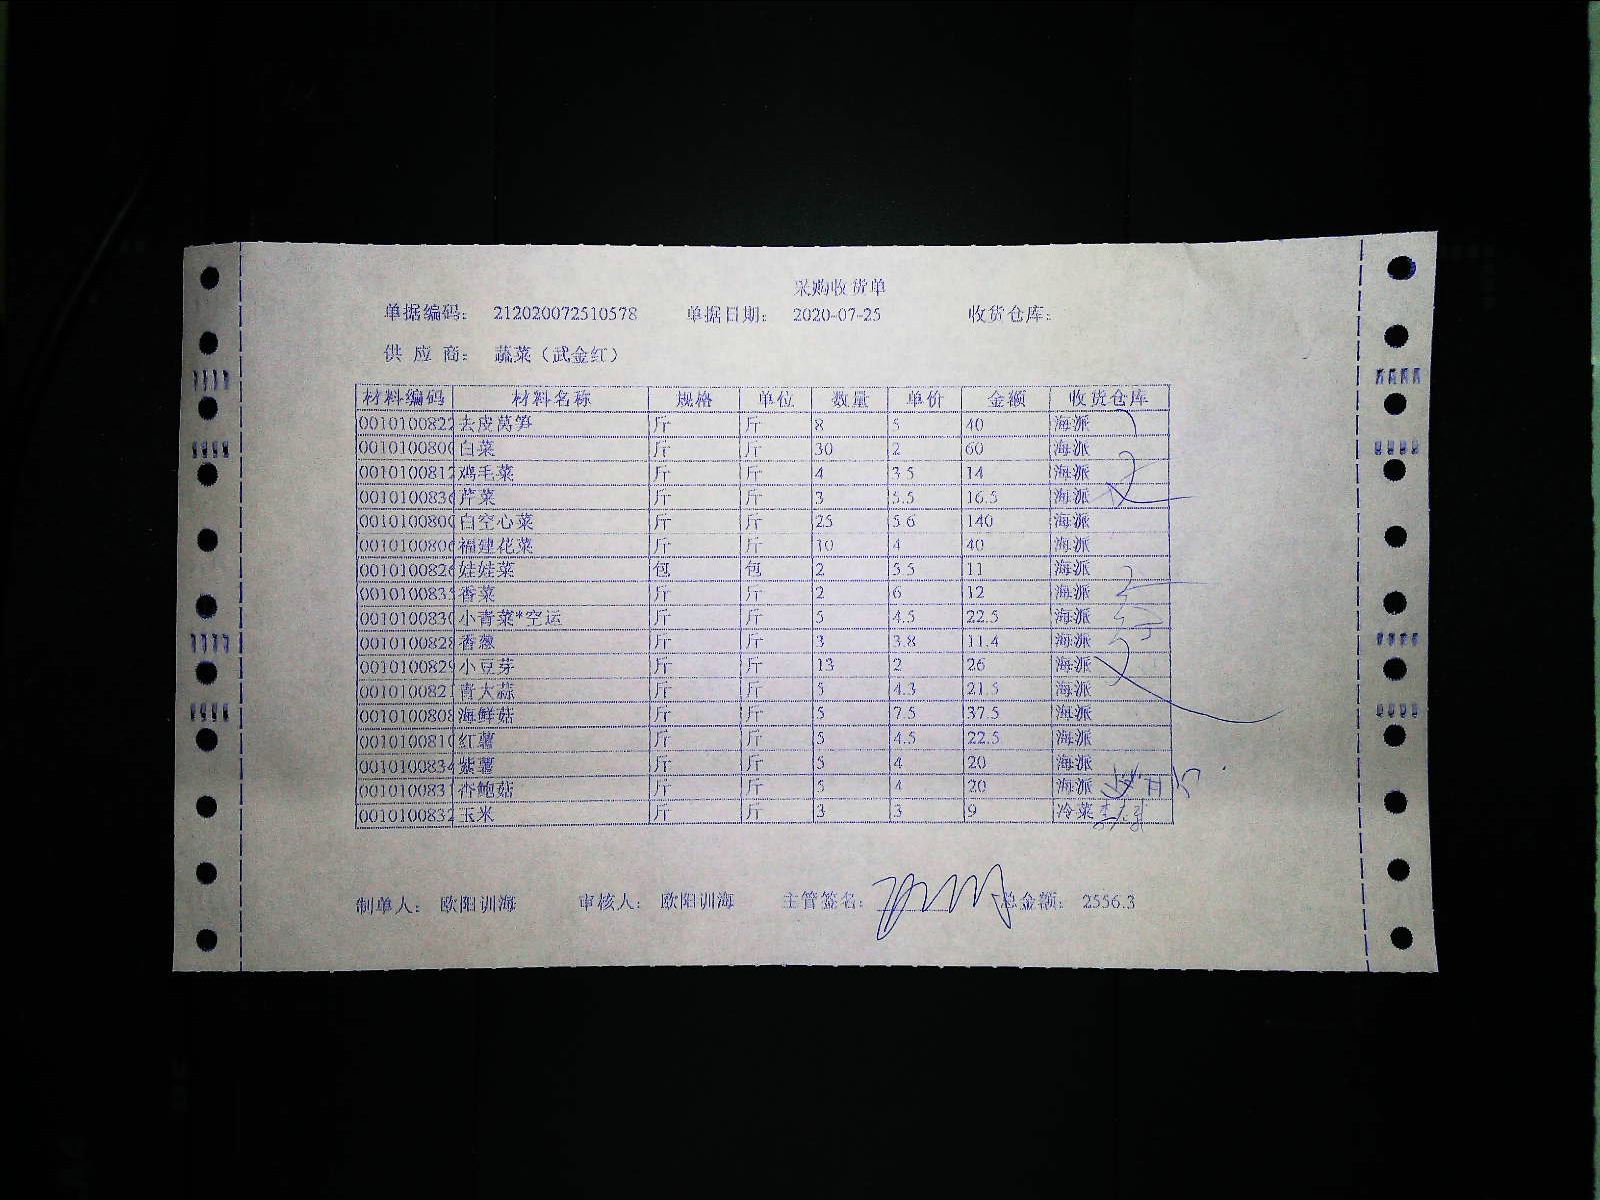 采购收货单
单据编码： 212020072510578 单据日期： 2020-07-25 收货仓库：
供 应 商： 蔬菜（武金红）
材料编码 材料名称 规格 单位 数量 单价 金额 收货仓库
0010100822 去皮莴笋 斤 斤 8 5 40 海派
001010080 白菜 斤 斤 30 2 60 海派
001010081 鸡毛菜 斤 斤 4 3.5 14 海派
001010083 芹菜 斤 斤 3 5.5 16.5 海派
001010080 白空心菜 斤 斤 25 5.6 140 海派
001010080 福建花菜 斤 斤 10 4 40 海派
001010082 娃娃菜 包 包 2 5.5 11 海派
001010083 香菜 斤 斤 2 6 12 海派
001010083 小青菜*空运 斤 斤 5 4.5 22.5 海派
001010082 香葱 斤 斤 3 3.8 11.4 海派
001010082 小豆芽 斤 斤 13 2 26 海派
001010082 青大蒜 斤 斤 5 4.3 21.5 海派
001010080 海鲜菇 斤 斤 5 7.5 37.5 海派
001010081 红薯 斤 斤 5 4.5 22.5 海派
001010083 紫薯 斤 斤 5 4 20 海派
001010083 杏鲍菇 斤 斤 5 4 20 海派
0010100832 玉米 斤 斤 3 3 9 冷菜
制单人： 欧阳训海 审核人： 欧阳训海 主管签名： 总金额： 2556.3